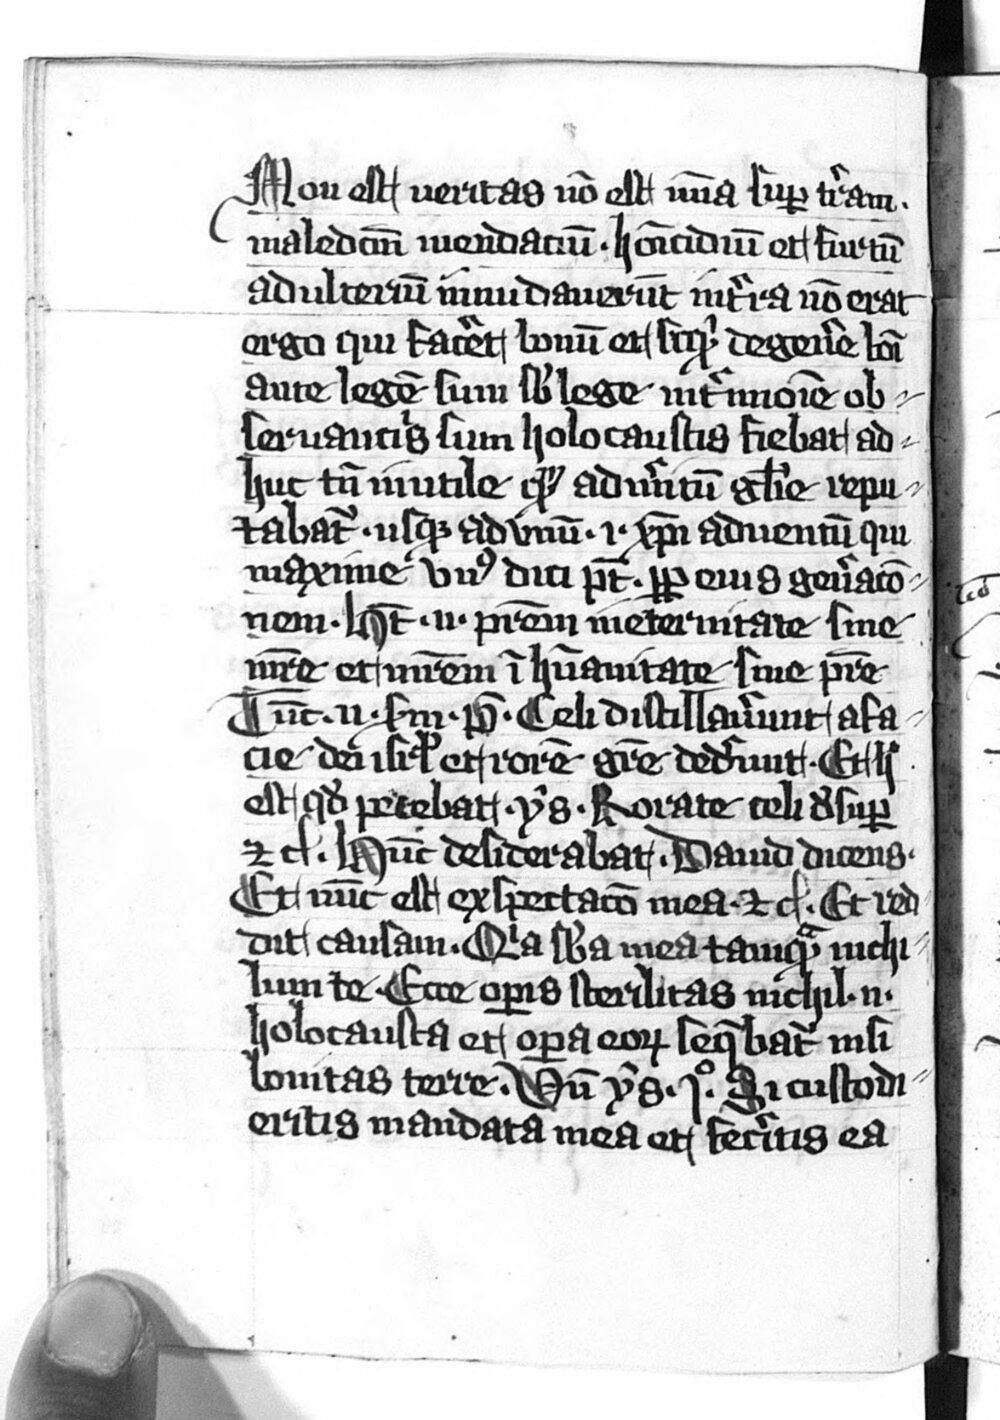 Non est veritas nō est mīa sup̱ tr̄am.
maledcm̄ mendaciū. hōicidiū et furtū
adulteriū inūdaverūt int̄ ra nō erat
ergo qui facēt bonū et de geñe
ante legē sum sb̄ lege ob
servantis sum holocaustis fiebat ad
huc tn̄ inutile qͥ ad glīe repu
tabat᷑. usqꝫ ad unū. i. xp̄i adventū qui
maxime vnꝰ dici pt̄. ꝓp̱ eius gen̄acō
nem. hȳt. n. pr̄em in eternitate sine
mr̄e et mr̄em ī hūanitate sine pr̄e
Tūc. n. fm. Celi distillav̄unt a fa
cie dei isrł et rorē gr̄e ded̄unt. Et h
est qd̄ petebat. ys̄. Rorate celi d̄sup̱
⁊ cͭ. hūc desiderabat. David dicens.
Et nūc est exspectacō mea. ⁊ cͭ. Et red
dit causam. Qͥa sb̄a mea tamqᷓ nichi
lum te. Ecce op̱is sterilitas nichil. n.
holocausta et op̱a eoꝝ seq̄bat᷑ nisi
bonitas terre. Vn̄ ys̄. iͦ. Si custodi
eritis mandata mea et fec̄itis ea